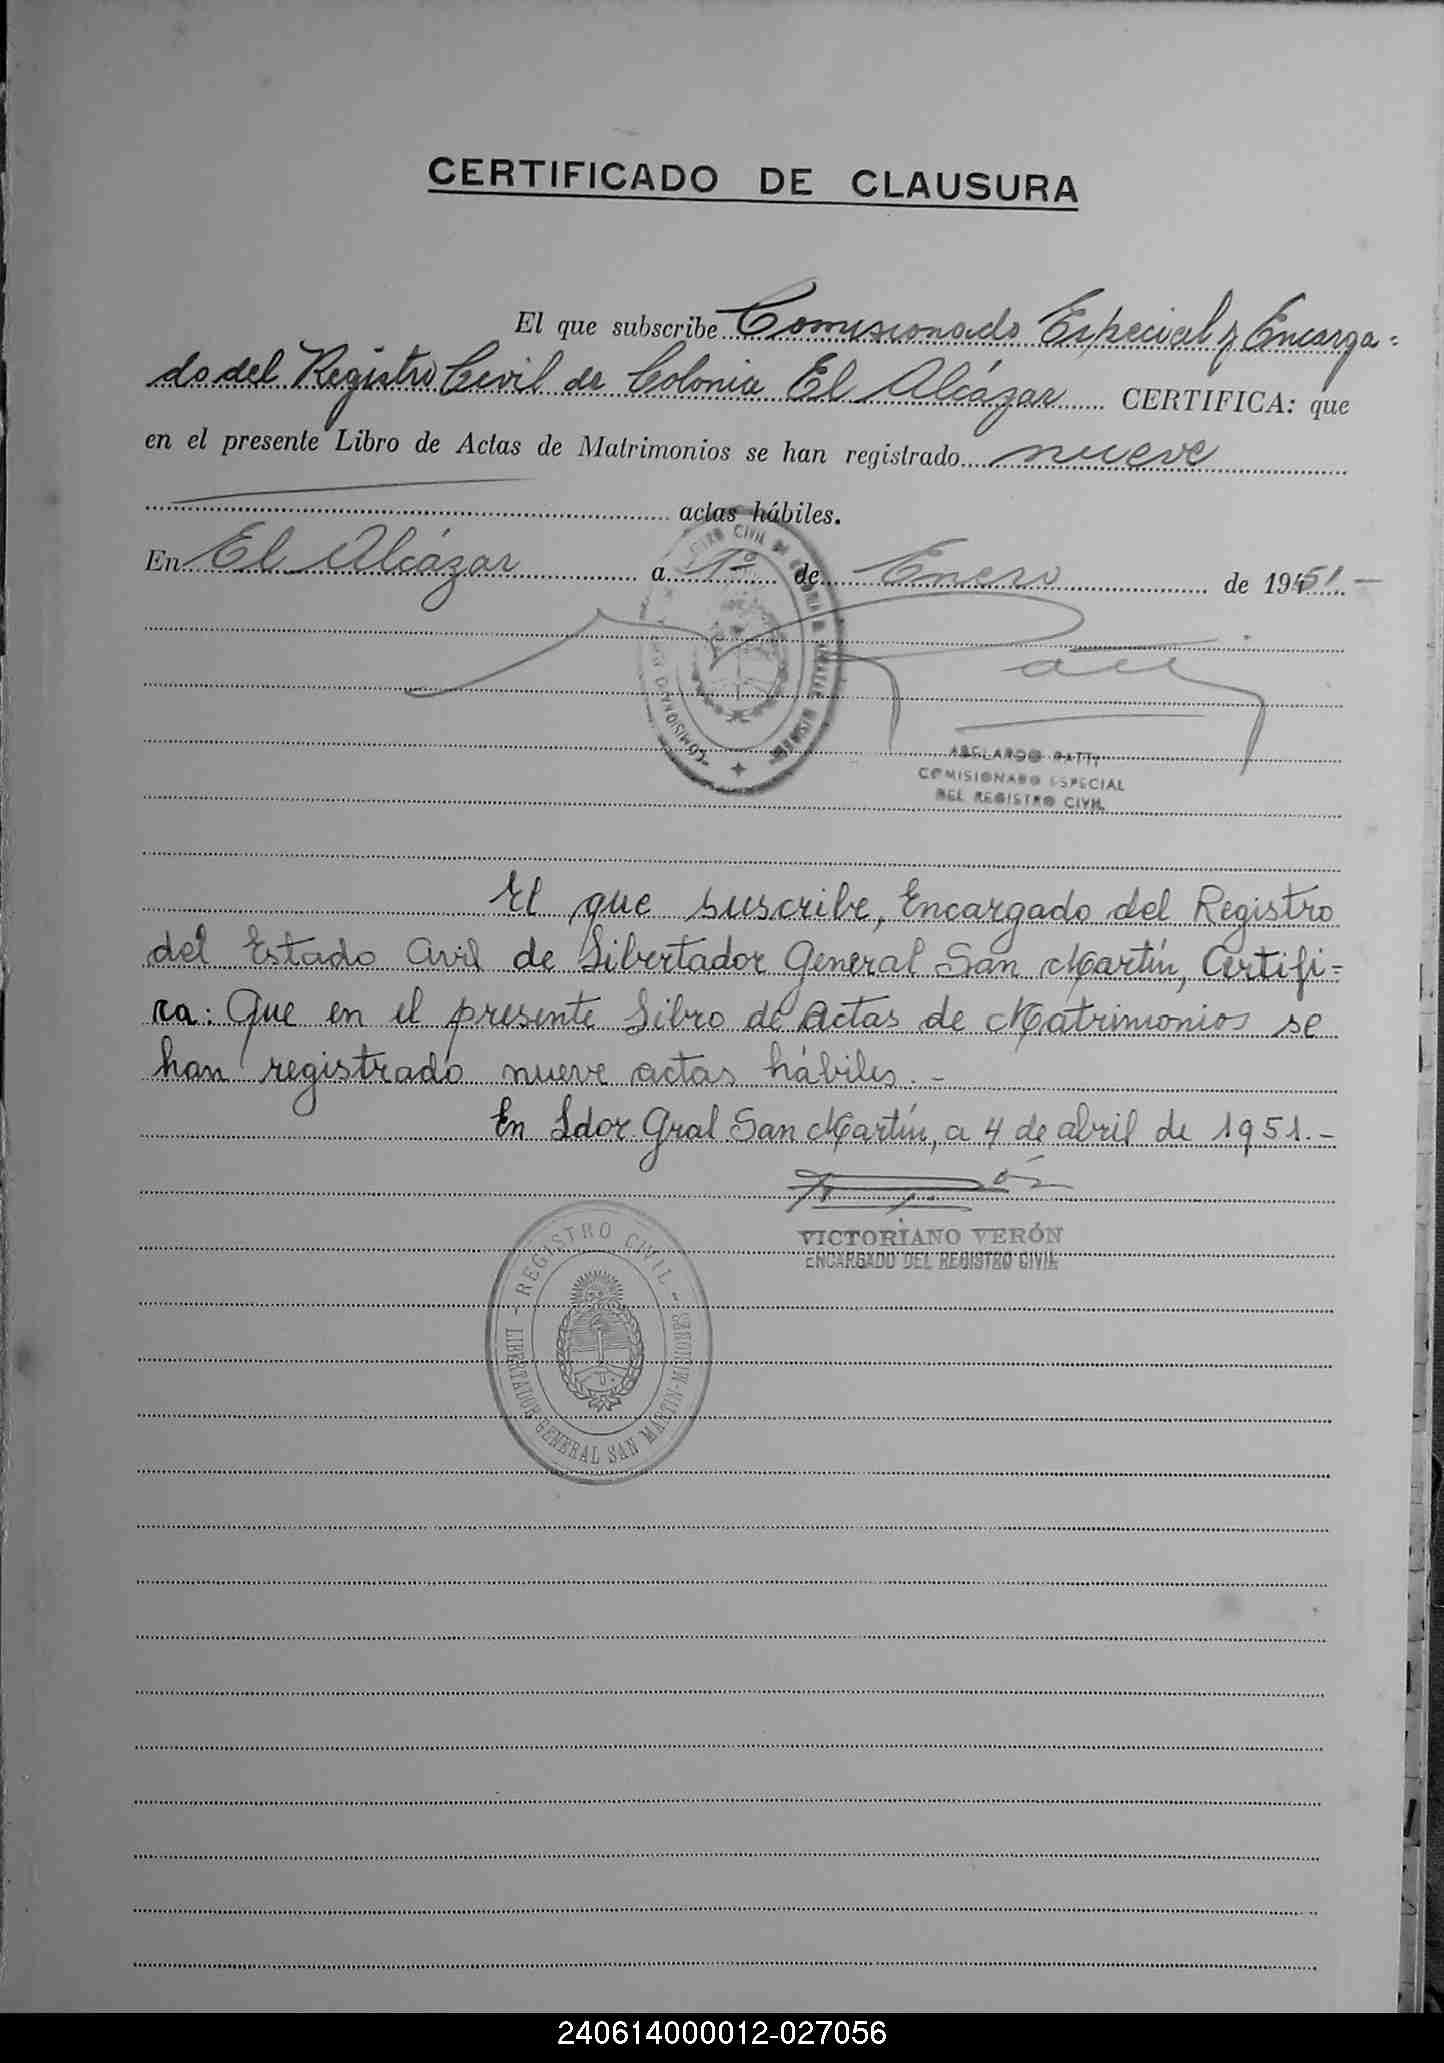 CERTIFICADO DE CLAUSURA
El que subscribe Comisionado Especial y Encarga=
do del Registro Civil de Colonia El Alcázar CERTIFICA: que
en el presente Libro de Actas de Matrimonios se han registrado nueve
actas hábiles.
En El Alcázar a 1º de Enero de 1951.-
Patti
ABELARDO PATTI
COMISIONADO ESPECIAL
DEL REGISTRO CIVIL
El que suscribe, Encargado del Registro
del Estado Civil de Libertador General San Martín, Certifi=
ca: Que en el presente Libro de Actas de Matrimonios se
han registrado nueve actas hábiles.-
En Ldor. Gral San Martín, a 4 de abril de 1951.-
VICTORIANO VERÓN
ENCARGADO DEL REGISTRO CIVIL
- REGISTRO CIVIL -
LIBERTADOR GENERAL SAN MARTIN-MISIONES
240614000012-027056